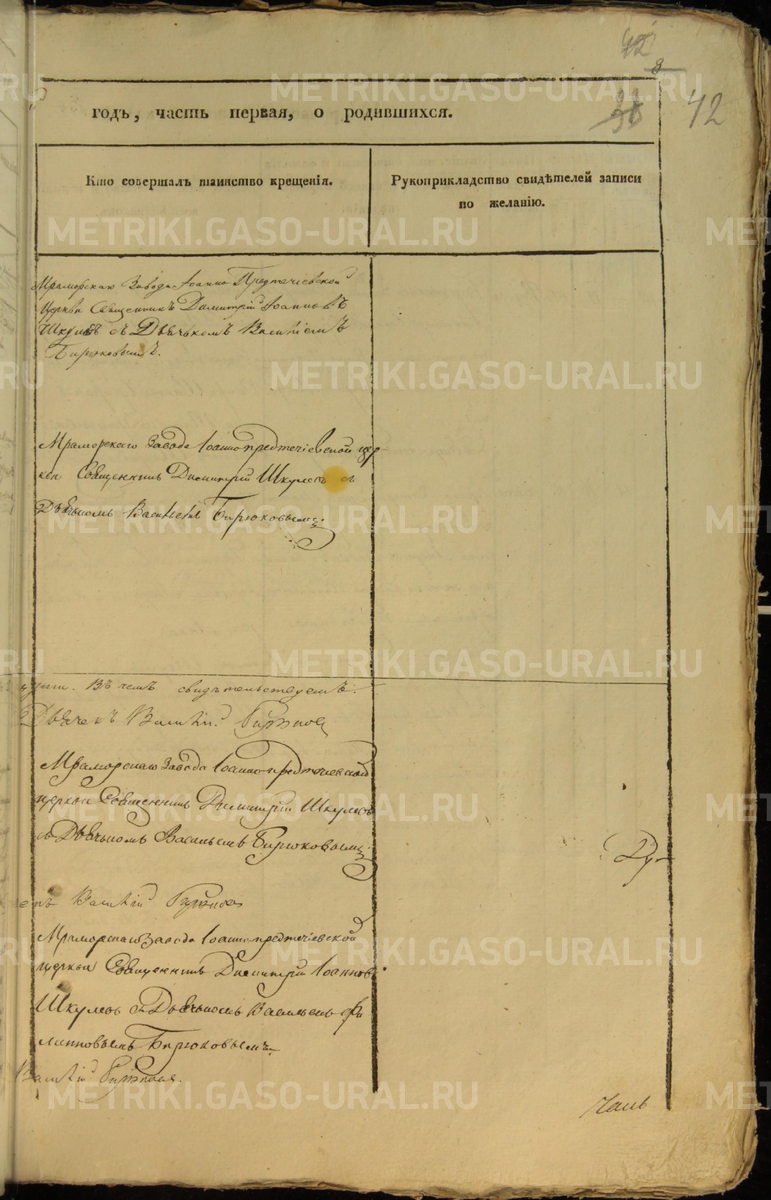 42
38
42
годъ, часть первая, о родившихся.
Кто совершалъ таинство крещенія.
Рукоприкладство свидѣтелей записи по желанію.
Мраморскаго Завода Іоанно Предтечіевской
Церкви Священникъ Димитрій Іоанновъ
Шкулевъ съ Дьячкомъ Василіемъ
Бирюковымъ.
Мраморскаго Завода Іоаннопредтечіевской цер-
кви Священникъ Димитрій Шкулевъ съ
Дьячкомъ Василіемъ Бирюковымъ.
Въ чемъ свидѣтельствуемъ.
Дьячекъ Василій Бирюковъ
Мраморскаго завода Іоаннопредтечевской
церкви Священникъ Димитрій Шкулевъ
съ Дьячкомъ Васильемъ Бирюковымъ.
Василій Бирюковъ
Мраморскаго Завода Іоаннопредтечевской
церкви Священникъ Димитрій Іоанновъ
Шкулевъ съ Дьячкомъ Васильемъ Фи
липповымъ Бирюковымъ
Василій Бирюковъ.
Часть
METRIKI.GASO-URAL.RU